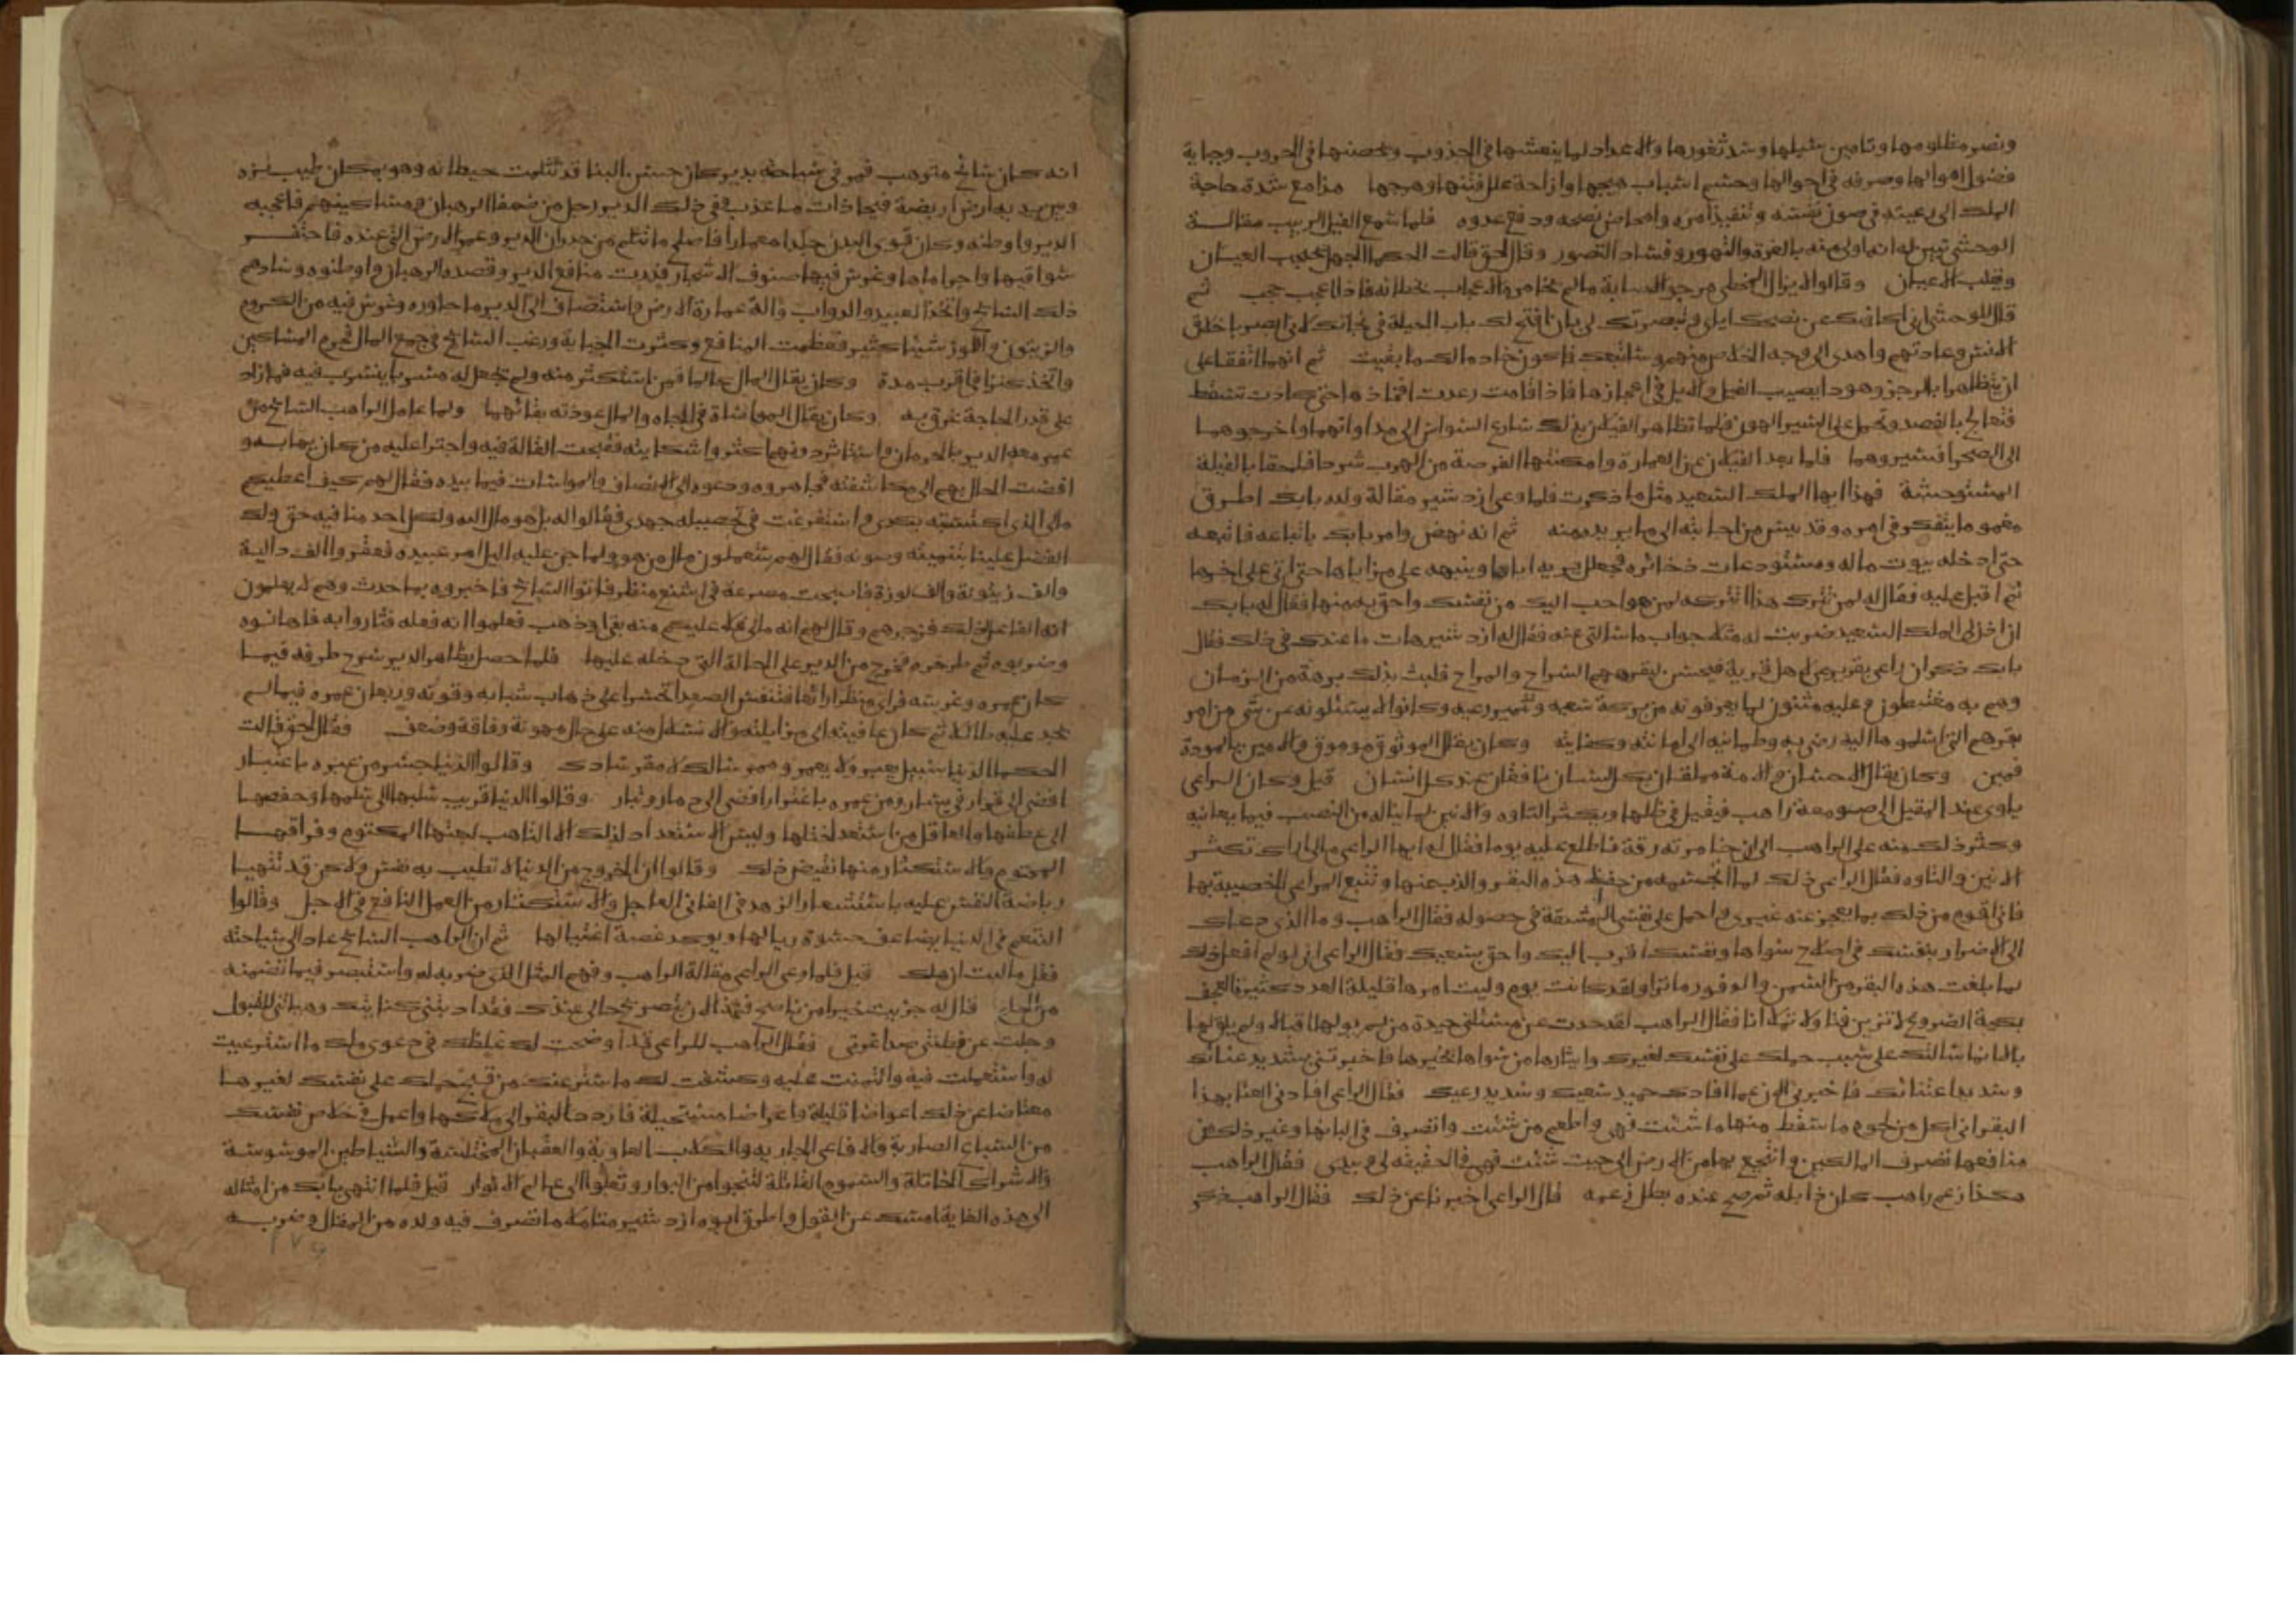 ونصر مظلومها وتامين سبيلها وسد ثغورها والاعداد لما ينعشها في الجدوب ويحصنها في الحروب وجباية
فضول اموالها وصرفه في احوالها وحسم اسباب هيجها وازاحة علل فتنها وهرجها هذا مع شدة حاجة
الملك الى رعيته في صون نفسه وتنفيذ امره وامحاض نصحه ودفع عدوه فلما سمع الفيل الربيب مقالة
الوحشي تبين له انه اولى منه بالغرة والتهور وفساد التصور وقال لحق قالت الحكما الجهل يحجب العيان
ويقلب الاعيان وقالوا لا يزال المخطي مرجو الاصابة ما لم يخامره الاعجاب بخطائه فاذا اعجب حجب ثم
قال للوحشي اني اكافيك عن نصحك اياي وتبصرتك لي بان افتح لك باب الحيلة في نجاتك لاني ابصر باخلاق
الانس وعادتهم واهدى الى وجه الخلاص منهم وساتبعك فاكون خادما لك ما بقيت ثم انهما اتفقا على
ان يتظاهرا بالرجز وهو دا يصيب الفيل والابل في اعجازها فاذا قامت رعدت افخاذها حتى كادت تسقط
فتعالج بالفصد وتحمل على السير الهون فلما تظاهر الفيلان بذلك سارع السواس الى مداواتهما واخرجوهما
الى الصحرا فسيروهما فلما بعد الفيلان عن العمارة وامكنتهما الفرصة من الهرب شردا فلحقا بالفيلة
المستوحشة فهذا ايها الملك السعيد مثل ما ذكرت فلما وعى ازدشير مقالة ولده بابك اطرق
مغموما يتفكر في امره وقد يئس من اجابته الى ما يريد منه ثم انه نهض وامر بابك باتباعه فاتبعه
حتى ادخله بيوت ماله ومستودعات ذخائره فجعل يريه اياها وينبهه على مزاياها حتى اتى على اخرها
ثم اقبل عليه فقال له لمن تترك هذا اتتركه لمن هو احب اليك من نفسك واحق به منها فقال له بابك
ان اذن لي الملك السعيد ضربت له مثلا جواب ما سالني عنه فقال له ازدشير هات ما عندك في ذلك فقال
بابك ذكر ان راعي بقر يرعى لاهل قرية فيحسن لبقرهم السراح والمراح فلبث بذلك برهة من الزمان
وهم به مغتبطون وعليه مثنون لما يعرفونه من بركة سعيه وتثمير رعيه وكانوا لا يسئلونه عن شي من امر
بقرهم التي اسلموها اليه رضى به وطمانينة الى امانته وكفايته وكان يقال الموثوق موموق والامين بالمودة
قمين وكان يقال الاحسان والامانة مطلقان بكل لسان نافقان عند كل انسان قيل وكان الراعي
ياوي عند المقيل الى صومعة راهب فيقيل في ظلها ويكثر التاوه والانين لما يناله من النصب فيما يعانيه
وكثر ذلك منه على الراهب الى ان خامرته رقة فاطلع عليه يوما فقال له ايها الراعي ما لي اراك تكثر
الانين والتاوه فقال الراعي ذلك لما اتجشمه من حفظ هذه البقر والذب عنها وتتبع المراعي الخصيبة بها
فاني اقوم من ذلك بما يعجز عنه غيري واحمل على نفسي المشقة في حصوله فقال الراهب وما الذي دعاك
الى الاضرار بنفسك في اصلاح سواها ونفسك اقرب اليك واحق بسعيك فقال الراعي اني لو لم افعل ذلك
لما بلغت هذه البقر من السمن والوفور ما ترا ولقد كانت يوم وليت امرها قليلة العدد كثيرة العجف
بكية الضروع لا تزين فنا ولا تملا انا فقال الراهب لقد حدت عن مسئلتي حيدة من لم يولها اقبالا ولم يلق لها
بالا انما سالتك على سبب حملك على نفسك لغيرك وايثارها من سواها بخيرها فاخبرتني بشديد عنائك
وسديد اعتنائك فاخبرني الان عما افادك حميد سعيك وسديد رعيك فقال الراعي افادني العنا بهذا
البقر اني اكل من لحوم ما سقط منها ما شئت فهي واطعم من شئت واتصرف في البانها وغير ذلك من
منافعها تصرف المالكين وانتجع بها من الارض الى حيث شئت فهي في الحقيقة لي وبيدي فقال الراهب
هكذا زعم راهب كان ذا بله ثم صح عنده بطل زعمه قال الراعي اخبرنا عن ذلك فقال الراهب ذكر
انه كان سائح مترهب فمر في سياحته بدير كان حسن البنا قد تثلمت حيطانه وهو بمكان طيب نزه
وبين يديه ارض اريضة فيحا ذات ما عذب وفي ذلك الدير رجل من ضعفا الرهبان ومساكينهم فاعجبه
الدير واوطنه وكان قوي البدن جلدا معمارا فاصلح ما تثلم من جدران الدير وعمر الارض التي عنده فاحتفر
سواقيها واجرا ماها وغرس فيها صنوف الاشجار فزيدت منافع الدير وقصده الرهبان واوطنوه وسادهم
ذلك السائح واتخذ العبيد والدواب والة عمارة الارض واستضاف الى الدير ما جاوره وغرس فيه من الكروم
والزيتون واللوز شيئا كثيرا فعظمت المنافع وكثرت الجباية ورغب السائح في جمع المال فحرم المساكين
واتخذ كنزا في اقرب مدة وكان يقال المال كالما فمن استكثر منه ولم يجعل له مسربا ينسرب فيه ما زاد
على قدر الحاجة غرق به وكان يقال المواساة في الجاه والمال عوذة بقائهما ولما عامل الراهب السائح من
عمر معه الدير بالحرمان واستاثر دونهم كثر واشكايته فقبحت القالة فيه واجترا عليه من كان يهابه و
افضت الحال بهم الى مكاشفته فجاهروه ودعوه الى الانصاف والمواسات فيما بيده فقال لهم كيف اعطيكم
مالي الذي اكتسبته بكدي واستفرغت في تحصيله جهدي فقالوا له بل هو مال الله ولكل احد منا فيه حق ولك
الفضل علينا بتنميته وصونه فقال لهم ستعلمون مال من هو ولما جن عليه الليل امر عبيده فعقروا الف دالية
والف زيتونة والف لوزة فاصبحت مصرعة في اشنع منظر فاتوا السائح فاخبروه بما حدث وهم لا يعلمون
انه الفاعل لذلك فزجرهم وقال لهم انه مالي فلا عليكم منه بقي او ذهب فعلموا انه فعله فثاروا به فاهانوه
وضربوه ثم طرحوه فخرج من الدير على الحالة التي دخله عليها فلما حصل بظاهر الدير سرح طرفه فيما
كان عمره وغرسه فراى منظرا رائعا فتنفس الصعدا تحسرا على ذهاب شبابه وقوته وريعان عمره فيما لم
يجد عليه طائلا ثم كان عاقبته الى مزايلته والانسلال منه على حال مهونة وفاقة وضعف فقال لحق قالت
الحكما الدنيا سبيل يعبر ولا يعمر وممر سالك لا مقر سادك وقالوا الدنيا جسر من عبره باعتبار
افضى الى قرار في يسار ومن عمره باغترار افضى الى دمار وتبار وقالوا الدنيا قريب سلبها الى سلمها وحفضها
الى عطبها والعاقل من استعد لختلها وليس الاستعداد لذلك الا التاهب لبغتها المكتوم وفراقها
المحتوم والاستكثار منها نقيض ذلك وقالوا ان الخروج من الدنيا لا تطيب به نفس ولكن قد تتهيا
رياضة النفس عليه باستشعار الزهد في الفاني العاجل والاستكثار من العمل النافع في الاجل وقالوا
التنعم في الدنيا يضاعف حسرة زيالها ويوكد غصة اغتيالها ثم ان الراهب السائح عاد الى سياحته
فقل ما لبث ان هلك قيل فلما وعى الراعي مقالة الراهب وفهم المثل الذي ضربه له واستبصر فيما تضمنه
من الحكم قال له جزيت خيرا من ناصح فخذ الان بنصري الى عندك فقد ادبتني كنايتك وهياتني للقبول
وجلت عن فطنتي صدا غرتي فقال الراهب للراعي قد اوضحت لك غلظك في دعوى ملك ما استرعيت
له واستعملت فيه وائتمنت عليه وكشفت لك ما ستر عنك من قبيح حملك على نفسك لغيرها
معتاضا عن ذلك اعواضا قليلة واعراضا مستحيلة فازدد البقر الى ملاكها واعمل في خلاص نفسك
من السباع الضارية والافاعي الجارية والكلاب العاوية والعقبان المختلسة والشياطين الموسوسة
والاشراك الخاتلة والسموم القاتلة لتنجوا من البوار وتعلوا الى عالم الانوار قيل فلما انتهى بابك من امثاله
الى هذه الغاية امسك عن القول واطرق ابوه ازدشير متاملا ما تصرف فيه ولده من المقال وضربه